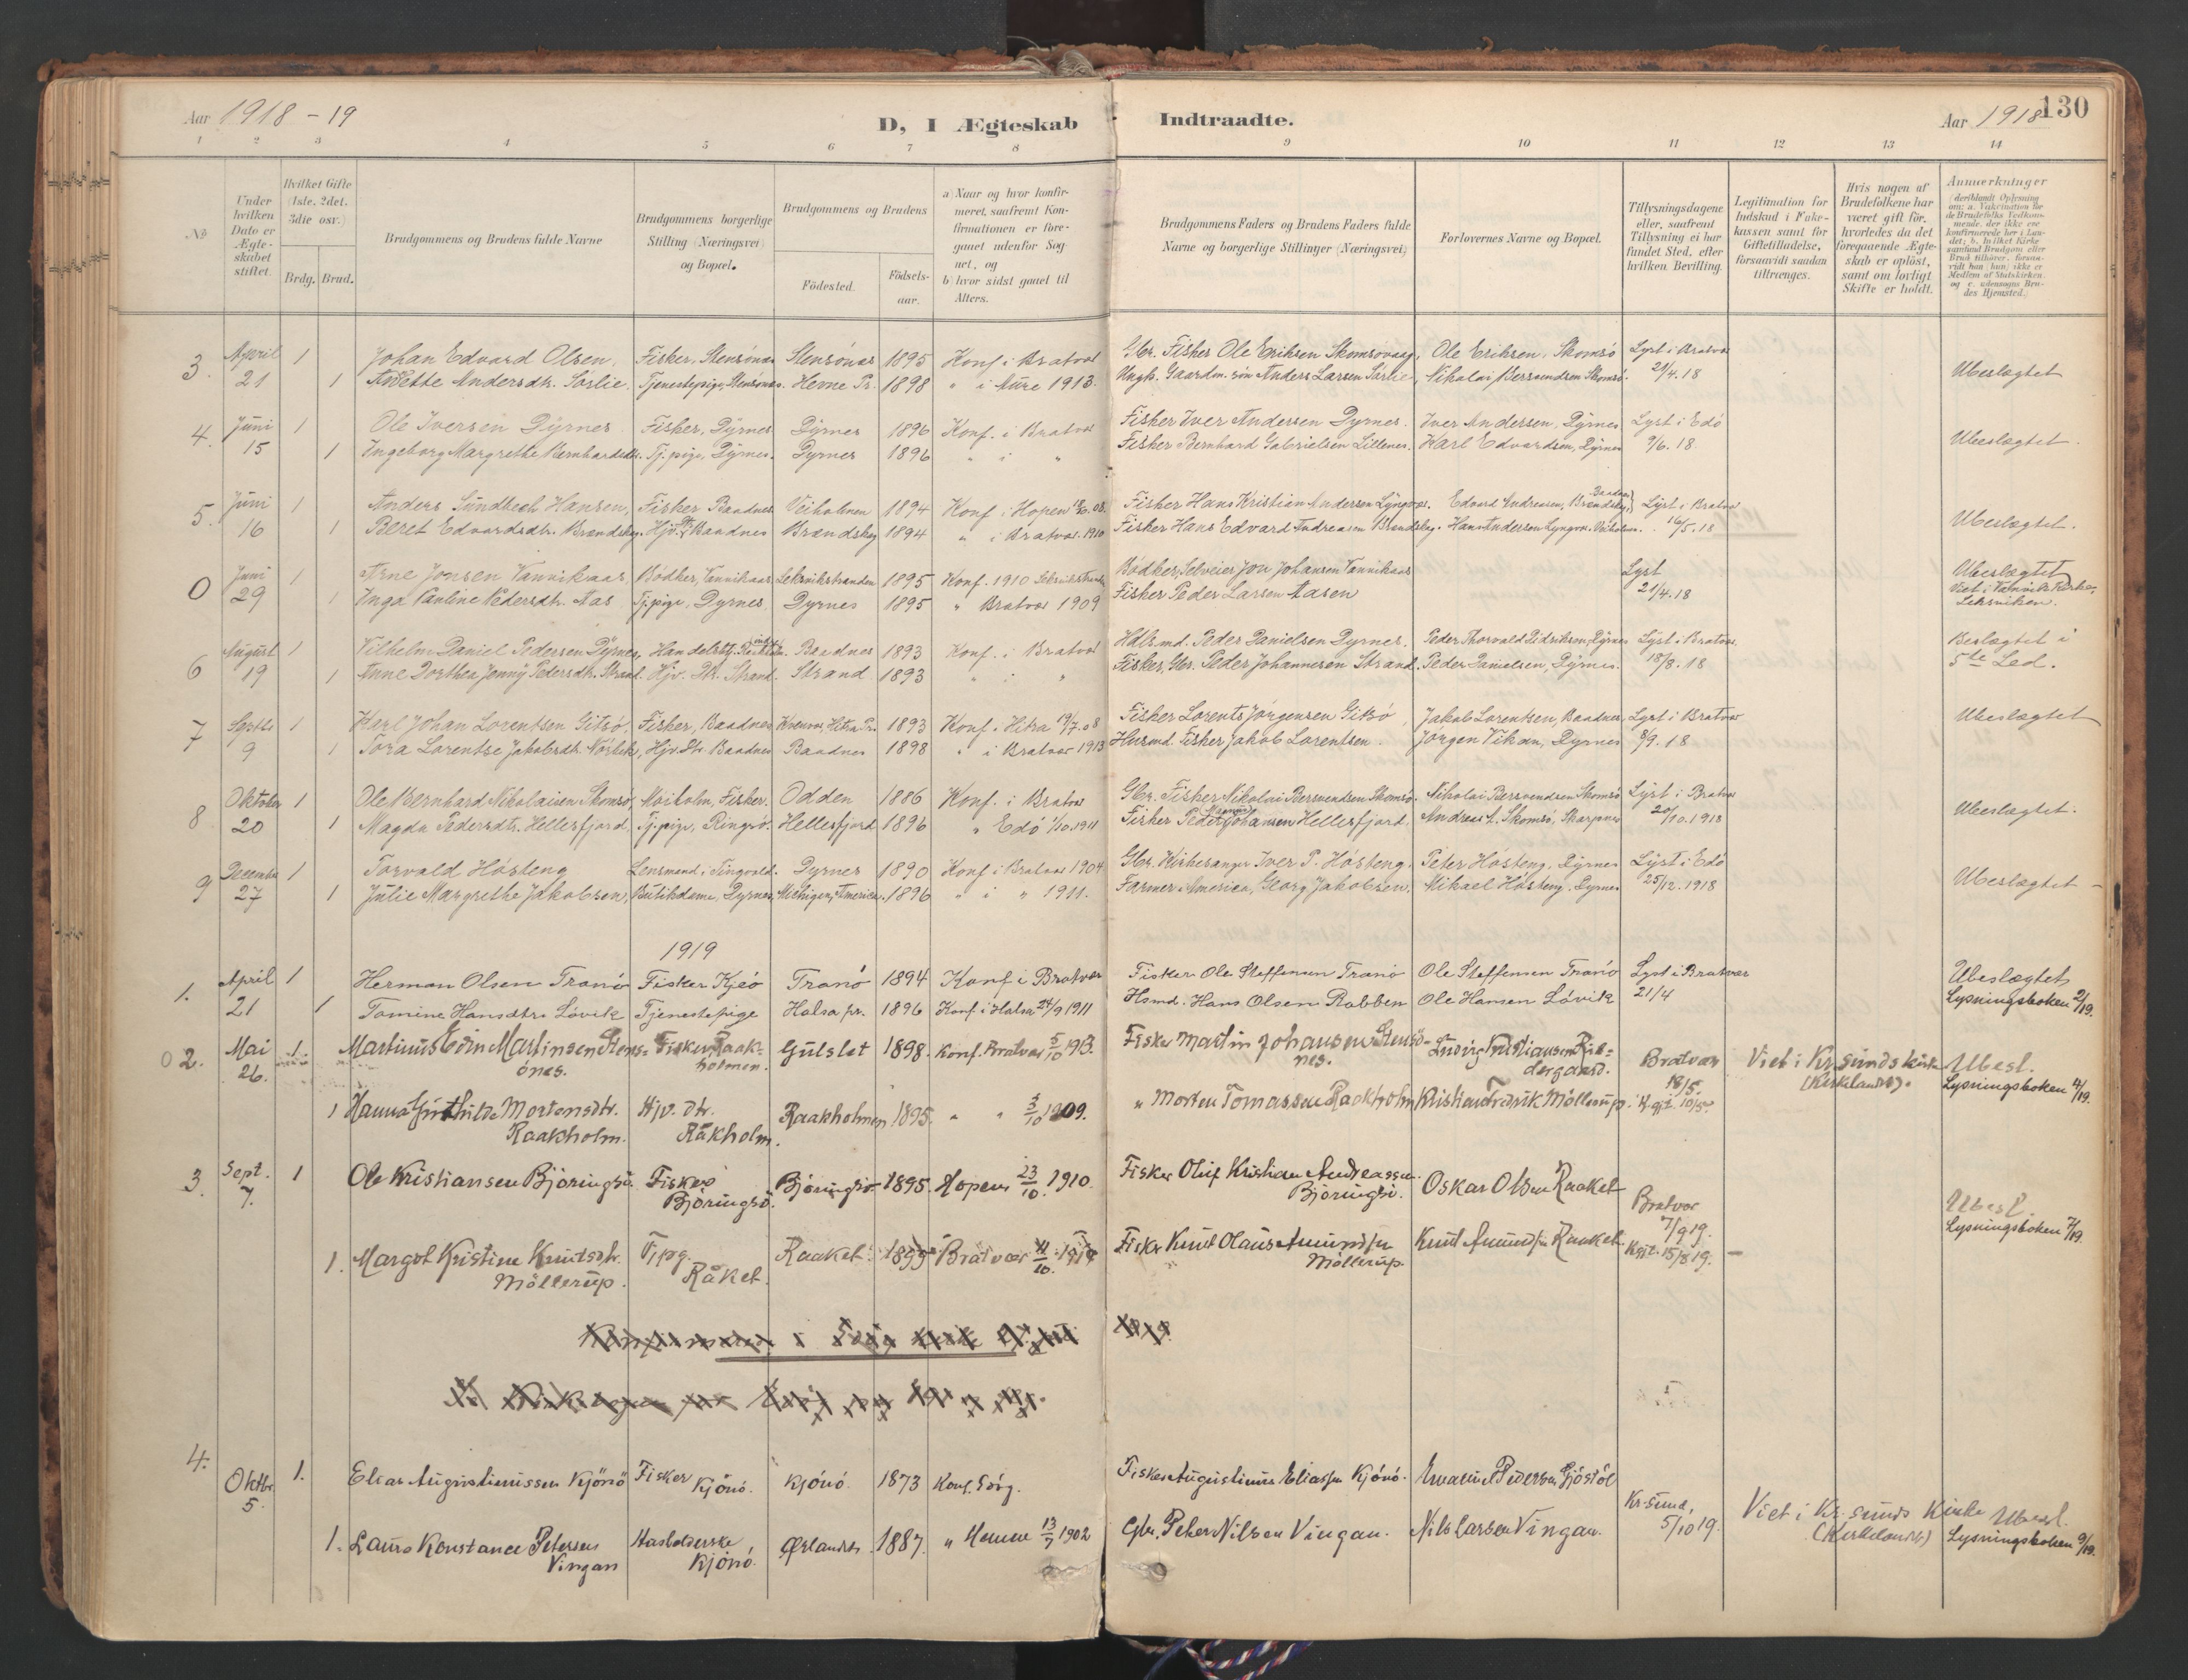 Aar 1918 - 19
D, I Ægteskab Indtraadte.
Aar 1918
130
1 2 3 4 5 6 7 8 9 10 11 12 13 14
No
Under hvilken Dato er Ægteskabet stiftet.
Hvilket Gifte (1ste, 2det, 3die osv.)
Brdg. Brud.
Brudgommens og Brudens fulde Navne
Brudgommens borgerlige Stilling (Næringsvei) og Bopæl.
Brudgommens og Brudens
Födested.
Födsels-aar.
a Naar og hvor konfirmeret, saafremt Konfirmationen er foregaaet udenfor Sognet, og
b hvor sidst gaaet til Alters.
Brudgommens Faders og Brudens Faders fulde Navne og borgerlige Stillinger (Næringsvei)
Forlovernes Navne og Bopæl.
Tillysningsdagene eller, saafremt Tillysning ei har fundet Sted, efter hvilken Bevilling.
Legitimation for Indskud i Enkekassen samt for Giftetilladelse, forsaavidt saadan tiltrænges.
Hvis nogen af Brudefolkene har været gift för, hvorledes da det foregaaende Ægteskab er oplöst, samt om lovligt Skifte er holdt.
Anmerkninger (deriblandt Oplysning om: a. Vakcination for de Brudefolks Vedkommende, der ikke ere konfirmerede her i Landet; b. hvilket Kirkesamfund Brudgom eller Brud tilhører, forsaavidt han (hun) ikke er Medlem af Statskirken, og c. udensogns Brudes Hjemsted.)
3. April 1 Johan Edvard Olsen, Fisker, Stensönes Stensönes 1895 Konf. i Bratvær Gbr. Fisker Ole Eriksen Skomsövaag, Ole Eriksen, Skomsö Lyst i Bratvær
21 1 Anette Andersdtr. Sörlie. Tjenestepige, Stensönes. Hevne Pr. 1898 " i Aure 1913. Ungk. Gaardm. sön Anders Larsen Sörlie, Nikolai Bersvendsen Skomsö. 21/4.18 Ubeslægtet
4. Juni 1 Ole Iversen Dyrnes Fisker, Dyrnes Dyrnes 1896 Konf. i Bratvær Fisker Iver Andersen Dyrnes. Iver Andersen, Dyrnes Lyst i Edö
15 1 Ingeborg Margrethe Bernhardsdtr. Tj.pige, Dyrnes. Dyrnes 1896 " i " Fisker Bernhard Gabrielsen Lillenes. Karl Edvardsen, Dyrnes 9/6.18 Ubeslægtet.
5. Juni 1 Anders Sundbech Hansen, Fisker Baadnes Veiholmen 1894 Konf i Hopen Fisker Hans Kristian Andersen Lyngvær. Edvard Andreasen, Brandskeg, Lyst i Bratvær
16 1 Beret Edvardsdtr. Brandskeg. Hjv. Baadnes Brandskeg 1894 " i Bratvær. 1910 Fisker Hans Edvard Andreasen Brandskeg. Hans Andersen Lyngvær. Veiholmen. 16/5.18 Ubeslægtet.
0 Juni 1 Arne Jonsen Vannikaas, Bödker, Vannikaas Leksvikstranden 1895 Konf. 1910 Leksvikstranden Bödker, Selveier Jon Johansen Vannikaas Lyst Ubeslægtet
29 1 Inga Pauline Pedersdtr. Aas Tj.pige, Dyrnes Dyrnes 1895 " Bratvær 1909 Fisker Peder Larsen Aasen 21/4.18 Viet i Kirke, Leksviken.
6 August 1 Vilhelm Daniel Pedersen Dyrnes, Baadnes 1893 Konf. i Bratvær Hdlsmd. Peder Danielsen Dyrnes. Peder Thorvald Didriksen, Dyrnes Lyst i Bratvær Beslægtet i
19 1 Anne Dorthea Jenny Pedersdtr. Strand. Hjv. Dtr. Strand. Strand 1893 " i " Fisker, Gbr. Peder Johannesen Strand. Peder Danielsen, Dyrnes. 18/8.18 5te Led.
7 Septbr 1 Karl Johan Lorentsen Gitsö, Fisker, Baadnes Hitra Pr. 1893 Konf. Hitra 19/7.08 Fisker Lorents Jörgensen Gitsö, Jakob Lorentsen, Baadnes, Lyst i Bratvær Ubeslægtet
9 1 Tora Lorentse Jakobsdtr. Hjv. Dtr. Baadnes Baadnes 1898 " i Bratvær 1913 Husmd. Fisker Jakob Lorentsen. Jörgen Vikan, Dyrnes 8/9.18
8 Oktober 1 Ole Bernhard Nikolaisen Skomsö, Moiholm, Fisker. Odden 1886 Konf. i Bratvær Gbr. Fisker Nikolai Bersvendsen Skomsö. Nikolai Bersvendsen Skomsö Lyst i Bratvær
20 1 Magda Pedersdtr. Hellesfjord, Tj.pige, Ringsö. Hellesfjord 1896 " Edö 1/10.1911 Fisker Peder Johansen Hellesfjord. Andreas A. Skomsö, Skarpnes 20/10.1918 Ubeslægtet.
9 December 1 Torvald Hösteng Lensmand i Tingvold. Dyrnes 1890 Konf i Bratvær 1904 Gbr. Kirkesanger Iver P. Hösteng. Peter Hösteng, Dyrnes Lyst i Edö
27 1 Julie Margrethe Jakobsen, Butikdame, Dyrnes, Michigan, America. 1896 " i " 1911. Farmer i America, Georg Jakobsen. Mikael Hösteng, Dyrnes 25/12.1918 Ubeslægtet -
1919
1. April 1 Herman Olsen Tranö Fisker Kjeö Tranö 1894 Konf i Bratvær Fisker Ole Steffensen Tranö Ole Steffensen Tranö Lyst i Bratvær Ubeslægtet
21 1 Tomine Hansdtr. Lövik Tjenestepige Halsa pr. 1896 Konf. i Halsa 24/9 1911 Hsmd. Hans Olsen Rabben Ole Hansen Lövik 21/4 Lysningsboken 2/19.
0 2. Mai 26. 1. Martinus Edin Martinsen Stensönes. Fisker, Raakholmen. Gulslet 1898. Konf. Bratvær 5/10 1913. Fisker Martin Johansen Stensönes. Ludvig Kristiansen Bratvær 18/5. Viet i Kr.sunds kirke (Kirkelandet). Ubesl.
1 Hanna Mortensdtr. Raakholm. Hjv. dtr. Råkholm. Raakholmen 1895. " " 3/10 1909. " Morten Tomassen Raakholm Kristian Fredrik Möllerup. Lysningsboken 4/19.
3. Sept. 7. 1 Ole Kristiansen Björingsö. Fisker Björingsö. Björingsö 1895. Hopen 23/10. 1910. Fisker Oluf Kristian Andreassen Björingsö. Oskar Olsen Raaket Bratvær 7/9 19. Ubesl.
1. Margot Kristine Knutsdtr. Möllerup. Tj.pg. Råket. Raaket. Bratvær Fisker Knut Olaus Amundsen Möllerup. Knut Amundsen Raaket. Kgjt. 15/8 19. - Lysningsboken 7/19.
4. Oktbr. 5. 1. Elias Augustinussen Kjönö Fisker Kjönö. Kjönö. 1873 Konf. Fisker Augustinus Eliassen Kjönö. Emanuel Pedersen Kr.sund, 5/10 19. Viet i Kr.sunds Kirke (Kirkelandet) Ubesl.
1. Laura Konstance Petersen Vingan Husholderske Kjönó. Ørlandet 1887. " Hemne 13/7 1902 Gbr. Peter Nilsen Vingan. Nils Larsen Vingan. Lysningsboken 9/19.